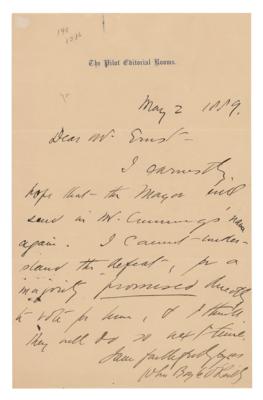 The Pilot Editorial Rooms.
May 2 1889.
Dear Mr. Ernst—
I earnestly
hope that the Mayor will
send in Mr. Cummings' name
again. I cannot under-
stand the defeat, for a
majority promised directly
to vote for him, & I think
they will do so next time.
I am faithfully yours
John Boyle O'Reilly